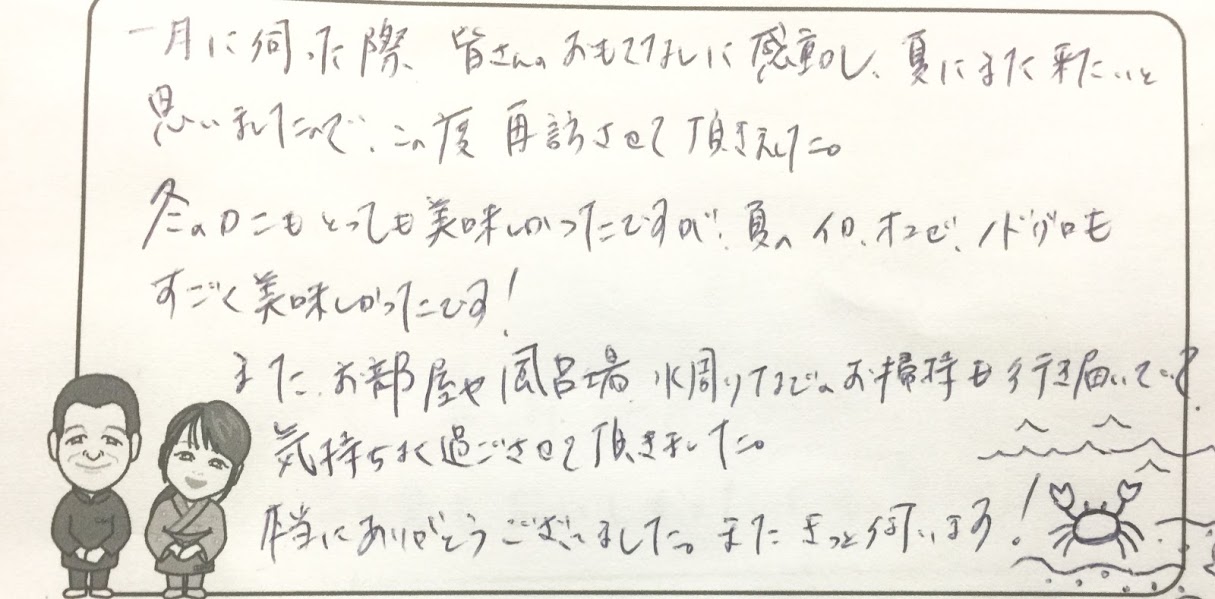 一月に伺った際、皆さんのおもてなしに感動し、夏にまた来たいと
思いましたので、この度 再訪させて頂きました。
冬のカニもとっても美味しかったですが、夏のイカ、オコゼ、ノドグロも
すごく美味しかったです!
また、お部屋や風呂場、水周りなどのお掃除も行き届いていて
気持ちよく過ごさせて頂きました。
本当にありがとうございました。またきっと伺います!